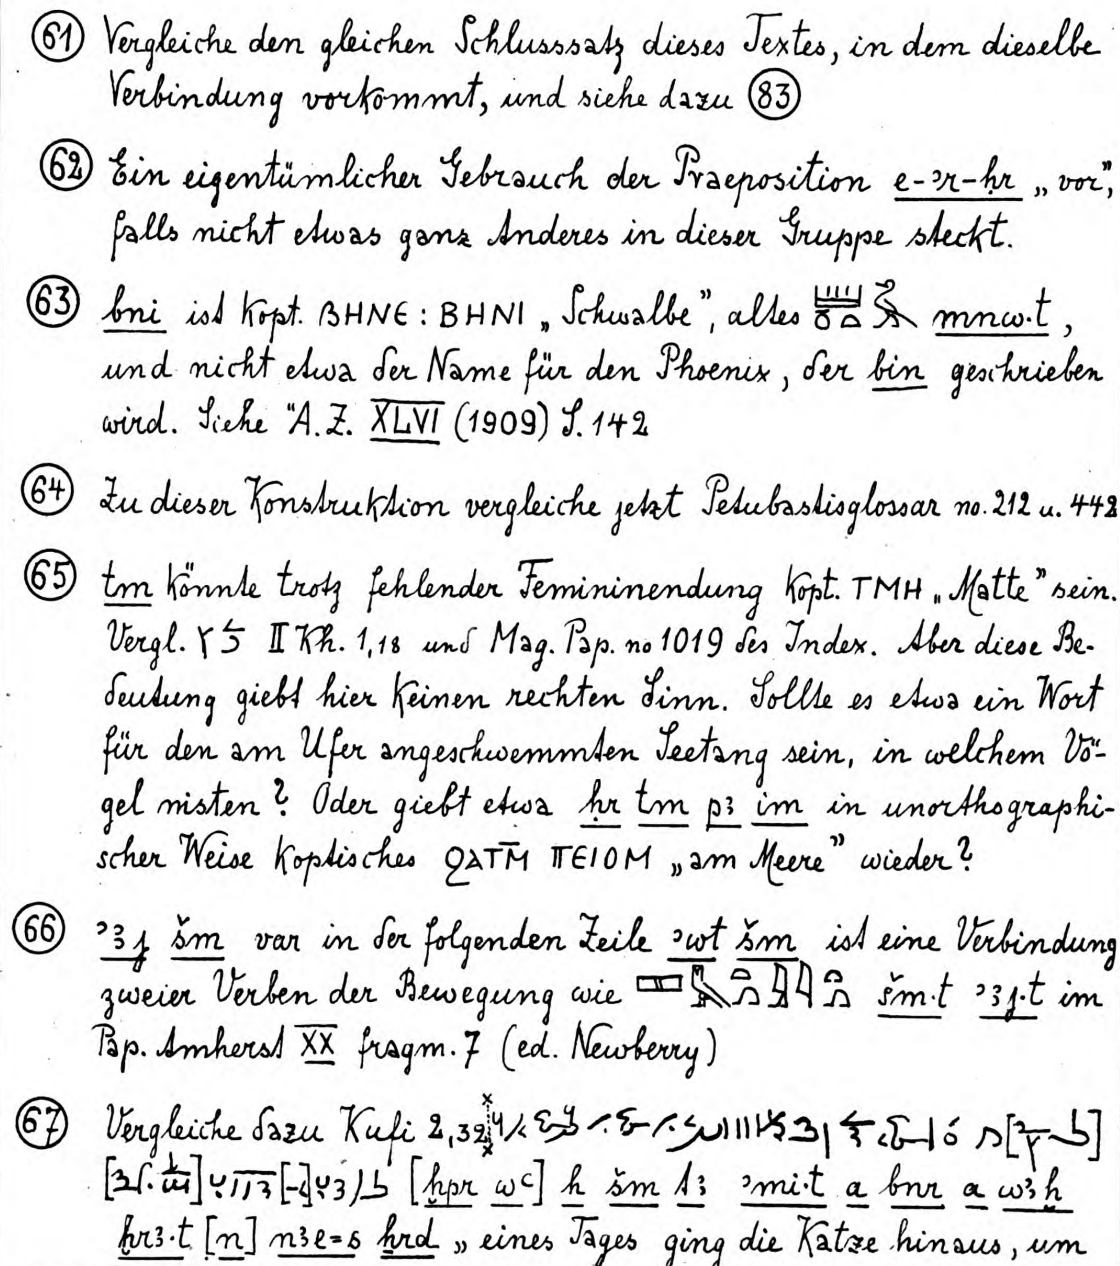 (61) Vergleiche den gleichen Schlusssatz dieses Textes, in dem dieselbe
Verbindung vorkommt, und siehe dazu (83)
(62) Ein eigentümlicher Gebrauch der Praeposition e-ꜣr-ḥr „vor”,
falls nicht etwas ganz Anderes in dieser Gruppe steckt.
(63) bni ist kopt. ⲂⲎⲚⲈ : ⲂⲎⲚⲒ „Schwalbe”, altes mnw·t,
und nicht etwa der Name für den Phoenix, der bin geschrieben
wird. Siehe Ä.Z. XLVI (1909) S. 142
(64) Zu dieser Konstruktion vergleiche jetzt Petubastisglossar no. 212 u. 442
(65) tm könnte trotz fehlender Femininendung kopt. ⲦⲘⲎ „Matte” sein.
Vergl. II Kh. 1,18 und Mag. Pap. no 1019 des Index. Aber diese Be-
deutung giebt hier keinen rechten Sinn. Sollte es etwa ein Wort
für den am Ufer angeschwemmten Seetang sein, in welchem Vö-
gel nisten? Oder giebt etwa ḥr tm pꜣ im in unorthographi-
scher Weise koptisches ϨⲀⲦⲘ̄ ⲠⲈⲒⲞⲘ „am Meere” wieder?
(66) ʾꜣj šm var in der folgenden Zeile ʾwt šm ist eine Verbindung
zweier Verben der Bewegung wie šm·t ʾꜣj·t im
Pap. Amherst XX fragm. 7 (ed. Newberry)
(67) Vergleiche dazu Kufi 2,32
[ḫpr wꜥ] h šm tꜣ ʾmi·t a bnr a wꜣḥ
ḫrꜣ·t [n] nꜣe=s ḫrd „eines Tages ging die Katze hinaus, um